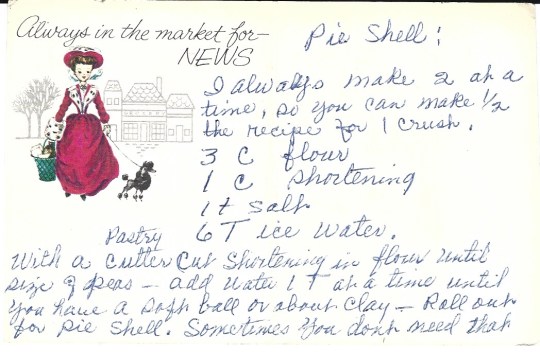 Always in the market for-
NEWS
Pie Shell:
I always make 2 at a
time, so you can make 1/2
the recipe for 1 crush.
3 C flour
1 C shortening
1 t salt
6 T ice water.
Pastry
With a cutter cut shortening in flour until
size of peas - add water 1 T at a time until
you have a soft ball or about clay - Roll out
for pie shell. Sometimes you don't need that